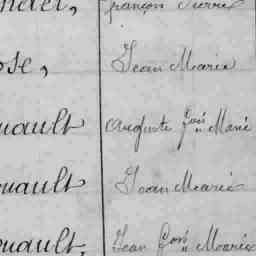 françois Pierre
ose, Jean Marie
ouault Auguste fçois Marie
ouault Jean Marie
ouault, Jean fçois Marie